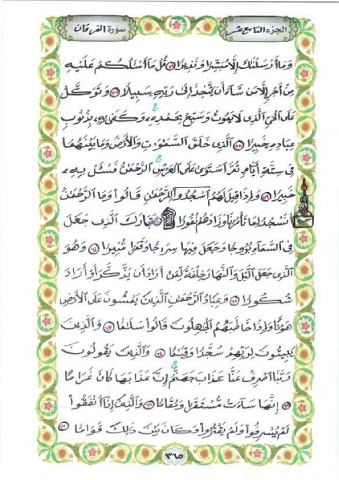 الجزء التاسع عشر
سورة الفرقان
وَمَا أَرْسَلْنَاكَ إِلَّا مُبَشِّرًا وَنَذِيرًا ٥٦ قُلْ مَا أَسْأَلُكُمْ عَلَيْهِ
مِنْ أَجْرٍ إِلَّا مَن شَاءَ أَن يَتَّخِذَ إِلَى رَبِّهِ سَبِيلًا ٥٧ وَتَوَكَّلْ
عَلَى الْحَيِّ الَّذِي لَا يَمُوتُ وَسَبِّحْ بِحَمْدِهِ وَكَفَى بِهِ بِذُنُوبِ
عِبَادِهِ خَبِيرًا ٥٨ الَّذِي خَلَقَ السَّمَوَاتِ وَالْأَرْضَ وَمَا بَيْنَهُمَا
فِي سِتَّةِ أَيَّامٍ ثُمَّ اسْتَوَى عَلَى الْعَرْشِ الرَّحْمَنُ فَسْئَلْ بِهِ
خَبِيرًا ٥٩ وَإِذَا قِيلَ لَهُمُ اسْجُدُوا لِلرَّحْمَنِ قَالُوا وَمَا الرَّحْمَنُ
أَنَسْجُدُ لِمَا تَأْمُرُنَا وَزَادَهُمْ نُفُورًا ٦٠ تَبَارَكَ الَّذِي جَعَلَ
فِي السَّمَاءِ بُرُوجًا وَجَعَلَ فِيهَا سِرَاجًا وَقَمَرًا مُنِيرًا ٦١ وَهُوَ
الَّذِي جَعَلَ الَّيْلَ وَالنَّهَارَ خِلْفَةً لِمَنْ أَرَادَ أَن يَذَّكَّرَ أَوْ أَرَادَ
شُكُورًا ٦٢ وَعِبَادُ الرَّحْمَنِ الَّذِينَ يَمْشُونَ عَلَى الْأَرْضِ
هَوْنًا وَإِذَا خَاطَبَهُمُ الْجَاهِلُونَ قَالُوا سَلَامًا ٦٣ وَالَّذِينَ
يَبِيتُونَ لِرَبِّهِمْ سُجَّدًا وَقِيَامًا ٦٤ وَالَّذِينَ يَقُولُونَ
رَبَّنَا اصْرِفْ عَنَّا عَذَابَ جَهَنَّمَ إِنَّ عَذَابَهَا كَانَ غَرَامًا
٦٥ إِنَّهَا سَاءَتْ مُسْتَقَرًّا وَمُقَامًا ٦٦ وَالَّذِينَ إِذَا أَنْفَقُوا
لَمْ يُسْرِفُوا وَلَمْ يَقْتُرُوا وَكَانَ بَيْنَ ذَلِكَ قَوَامًا ٦٧
٣٦٥